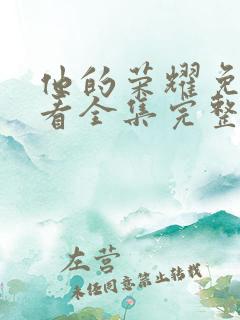 他的荣耀免
看全集完整
左营
未经同意禁止转载